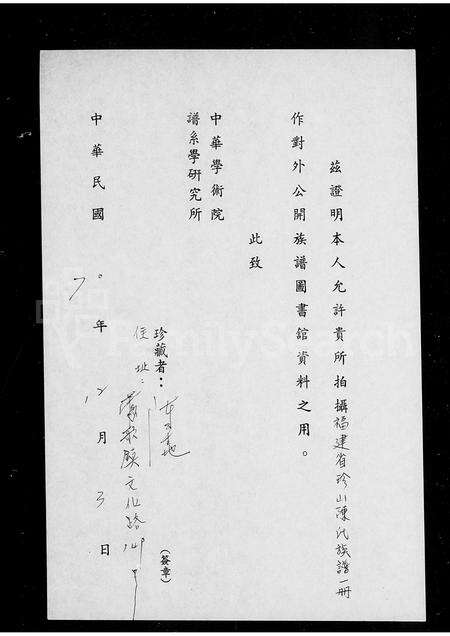 茲證明本人允許貴所拍攝福建省珍山陳氏族譜一冊
作對外公開族譜圖書館資料之用。
此致
中華學術院
譜系學研究所
珍藏者：
（簽章）
住址：縣文化路號
中華民國70年12月3日